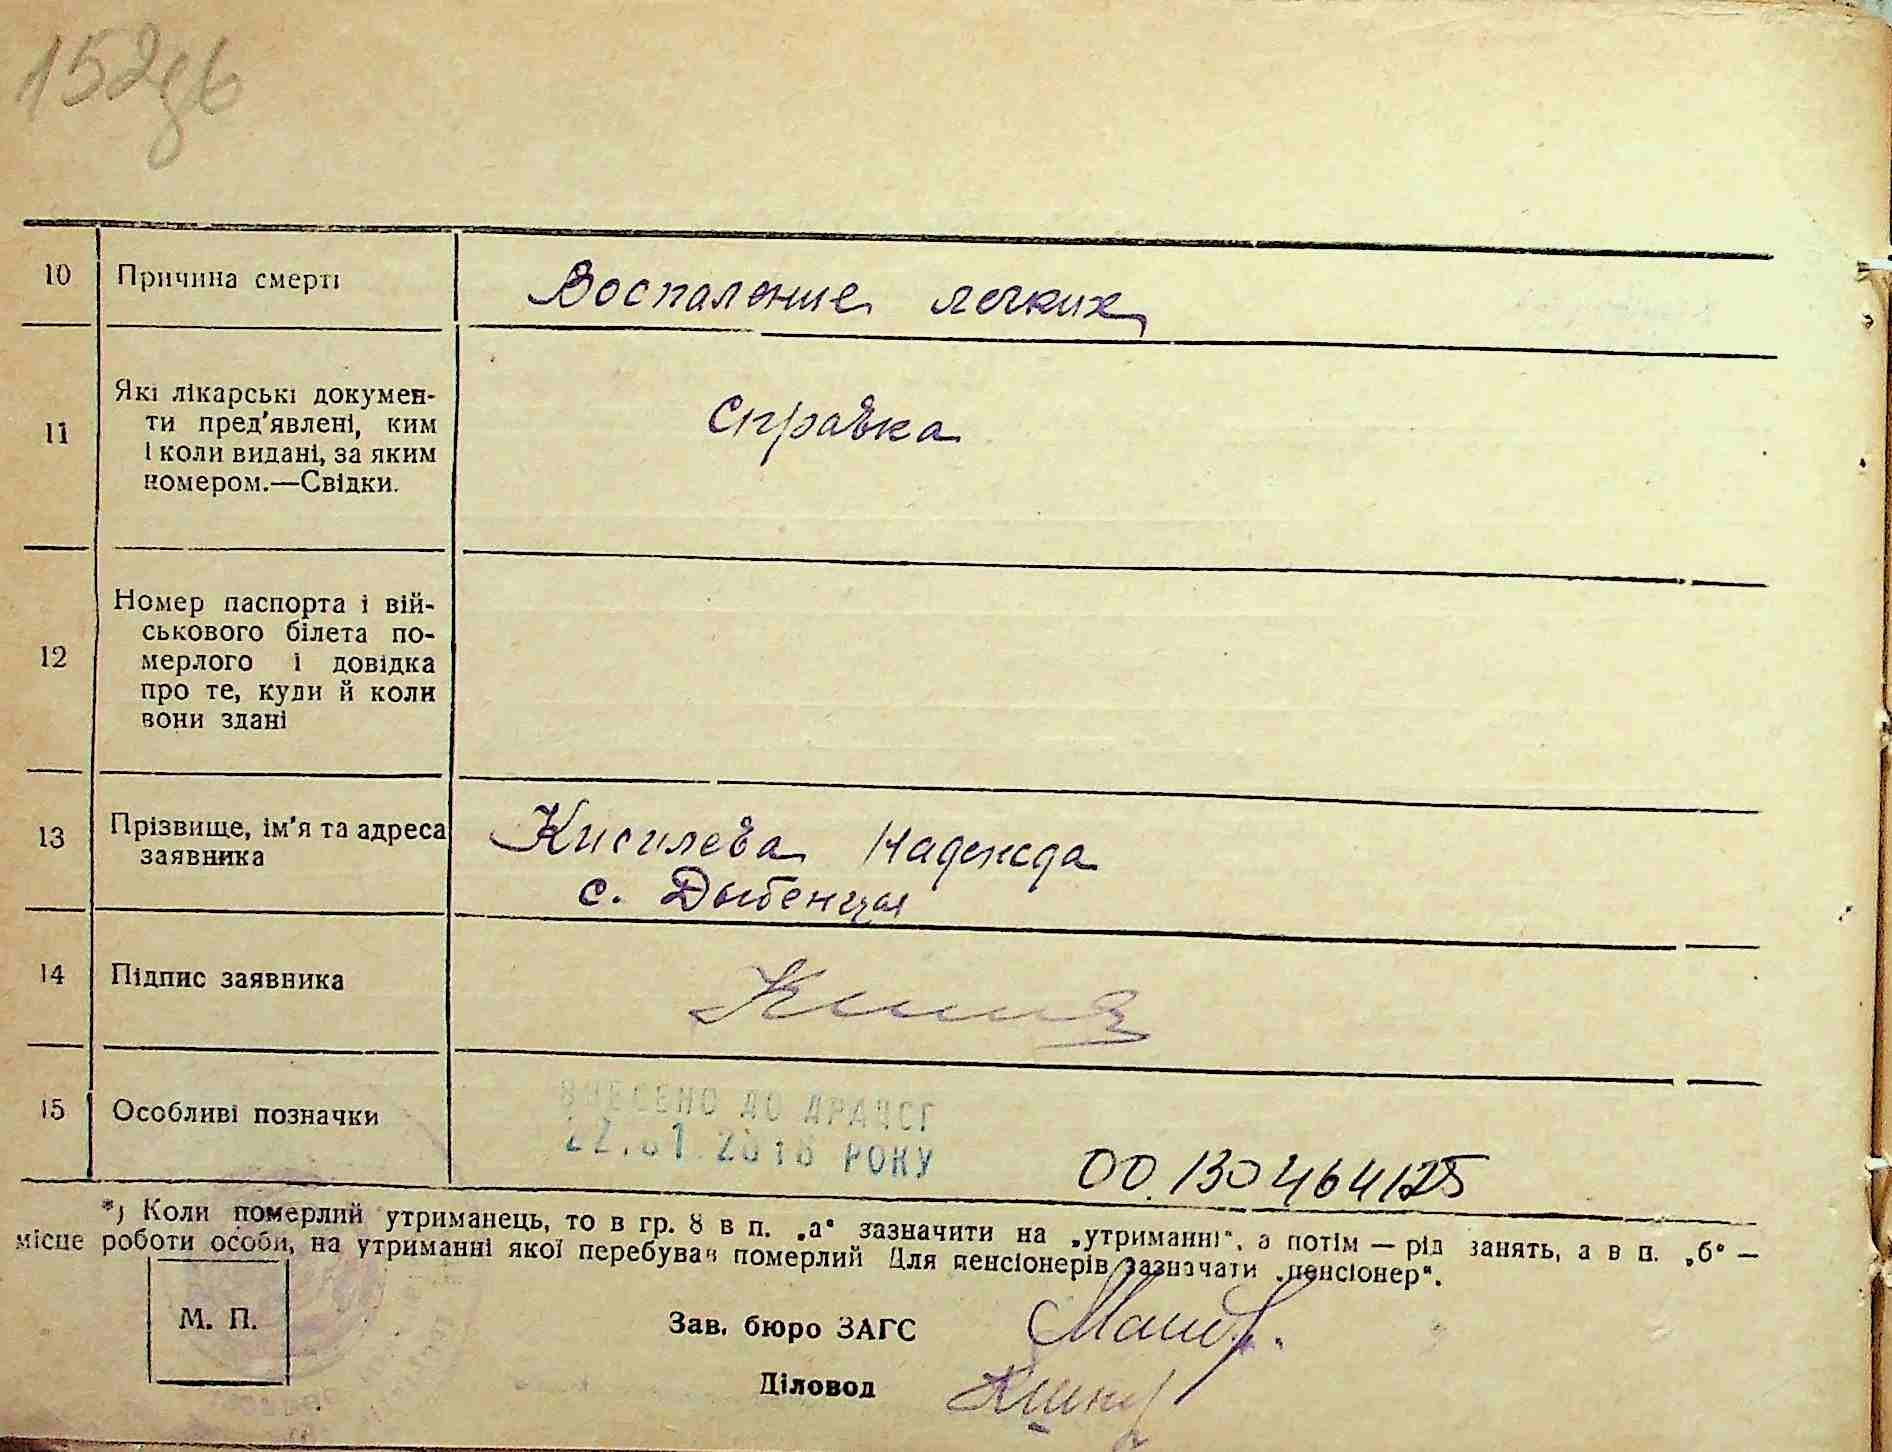 152
10 Причина смерті Воспаление легких
11 Які лікарські докумен-
ти пред'явлені, ким
і коли видані, за яким
номером.—Свідки.
Справка
12 Номер паспорта і вій-
ськового білета по-
мерлого і довідка
про те, куди й коли
вони здані
13 Прізвище, ім'я та адреса
заявника
Кисилева Надежда
с. Дыбенцы
14 Підпис заявника
15 Особливі позначки
ВНЕСЕНО ДО ДРАЦСГ
22.01.2018 РОКУ
00130464125
*) Коли померлий утриманець, то в гр. 8 в п. „а“ зазначити на „утриманні“, а потім — рід занять, а в п. „б“ —
місце роботи особи, на утриманні якої перебував померлий Для пенсіонерів зазначати „пенсіонер“.
М. П.
Зав. бюро ЗАГС
Діловод